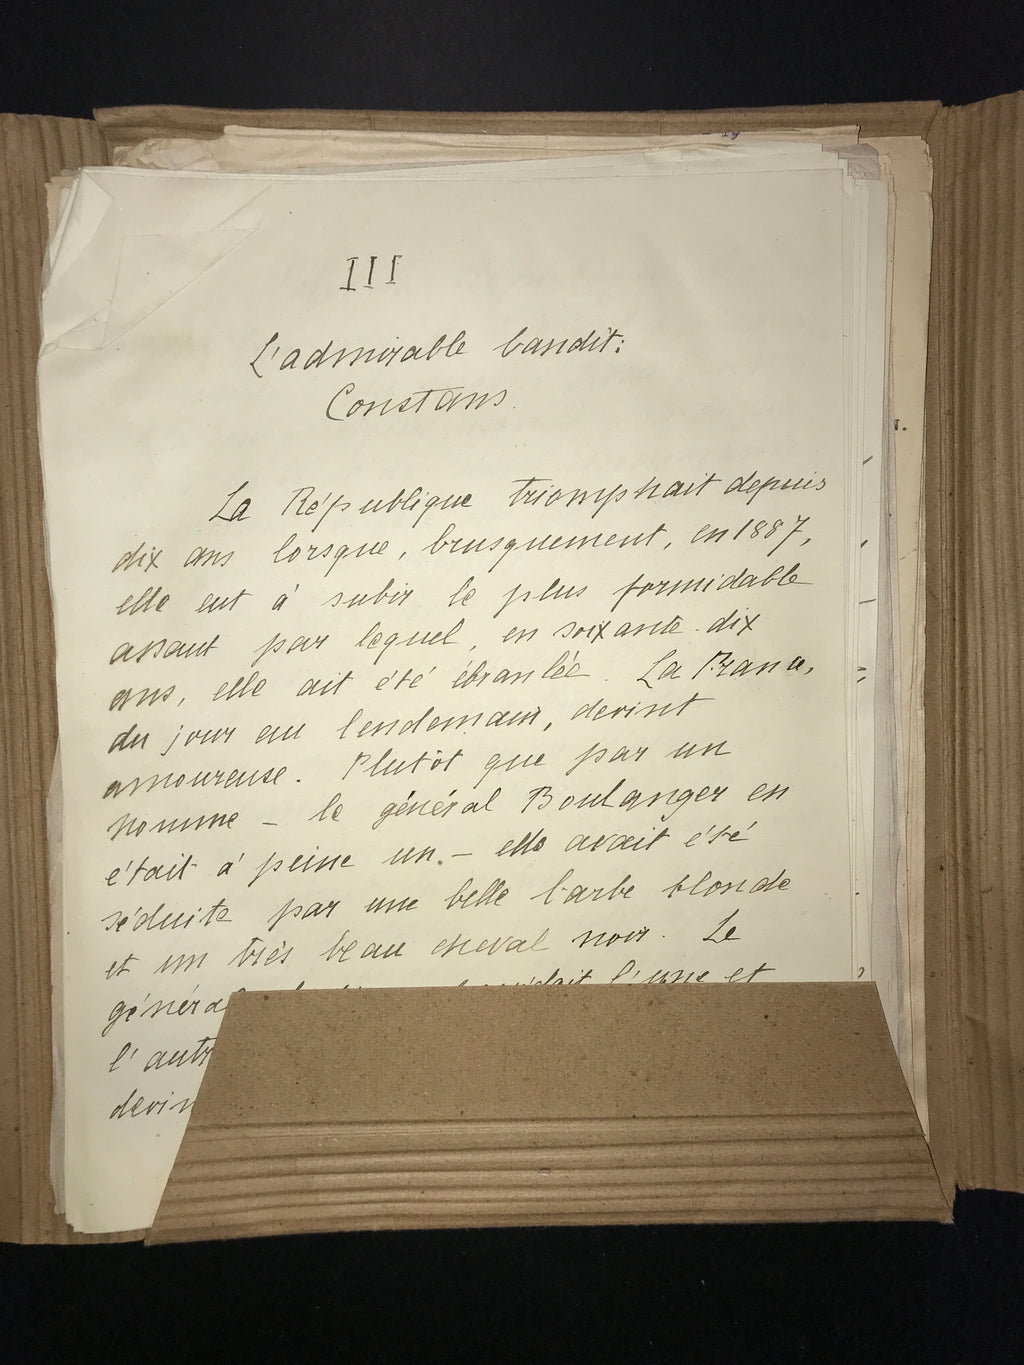 III
L'admirable bandit:
Constans
La République triomphait depuis
dix ans lorsque, brusquement, en 1887,
elle eut à subir le plus formidable
assaut par lequel, en soixante-dix
ans, elle ait été ébranlée. La France,
du jour au lendemain, devint
amoureuse. Plutôt que par un
homme – le général Boulanger en
était à peine un. – elle avait été
séduite par une belle barbe blonde
et un très beau cheval noir. Le
l'une et